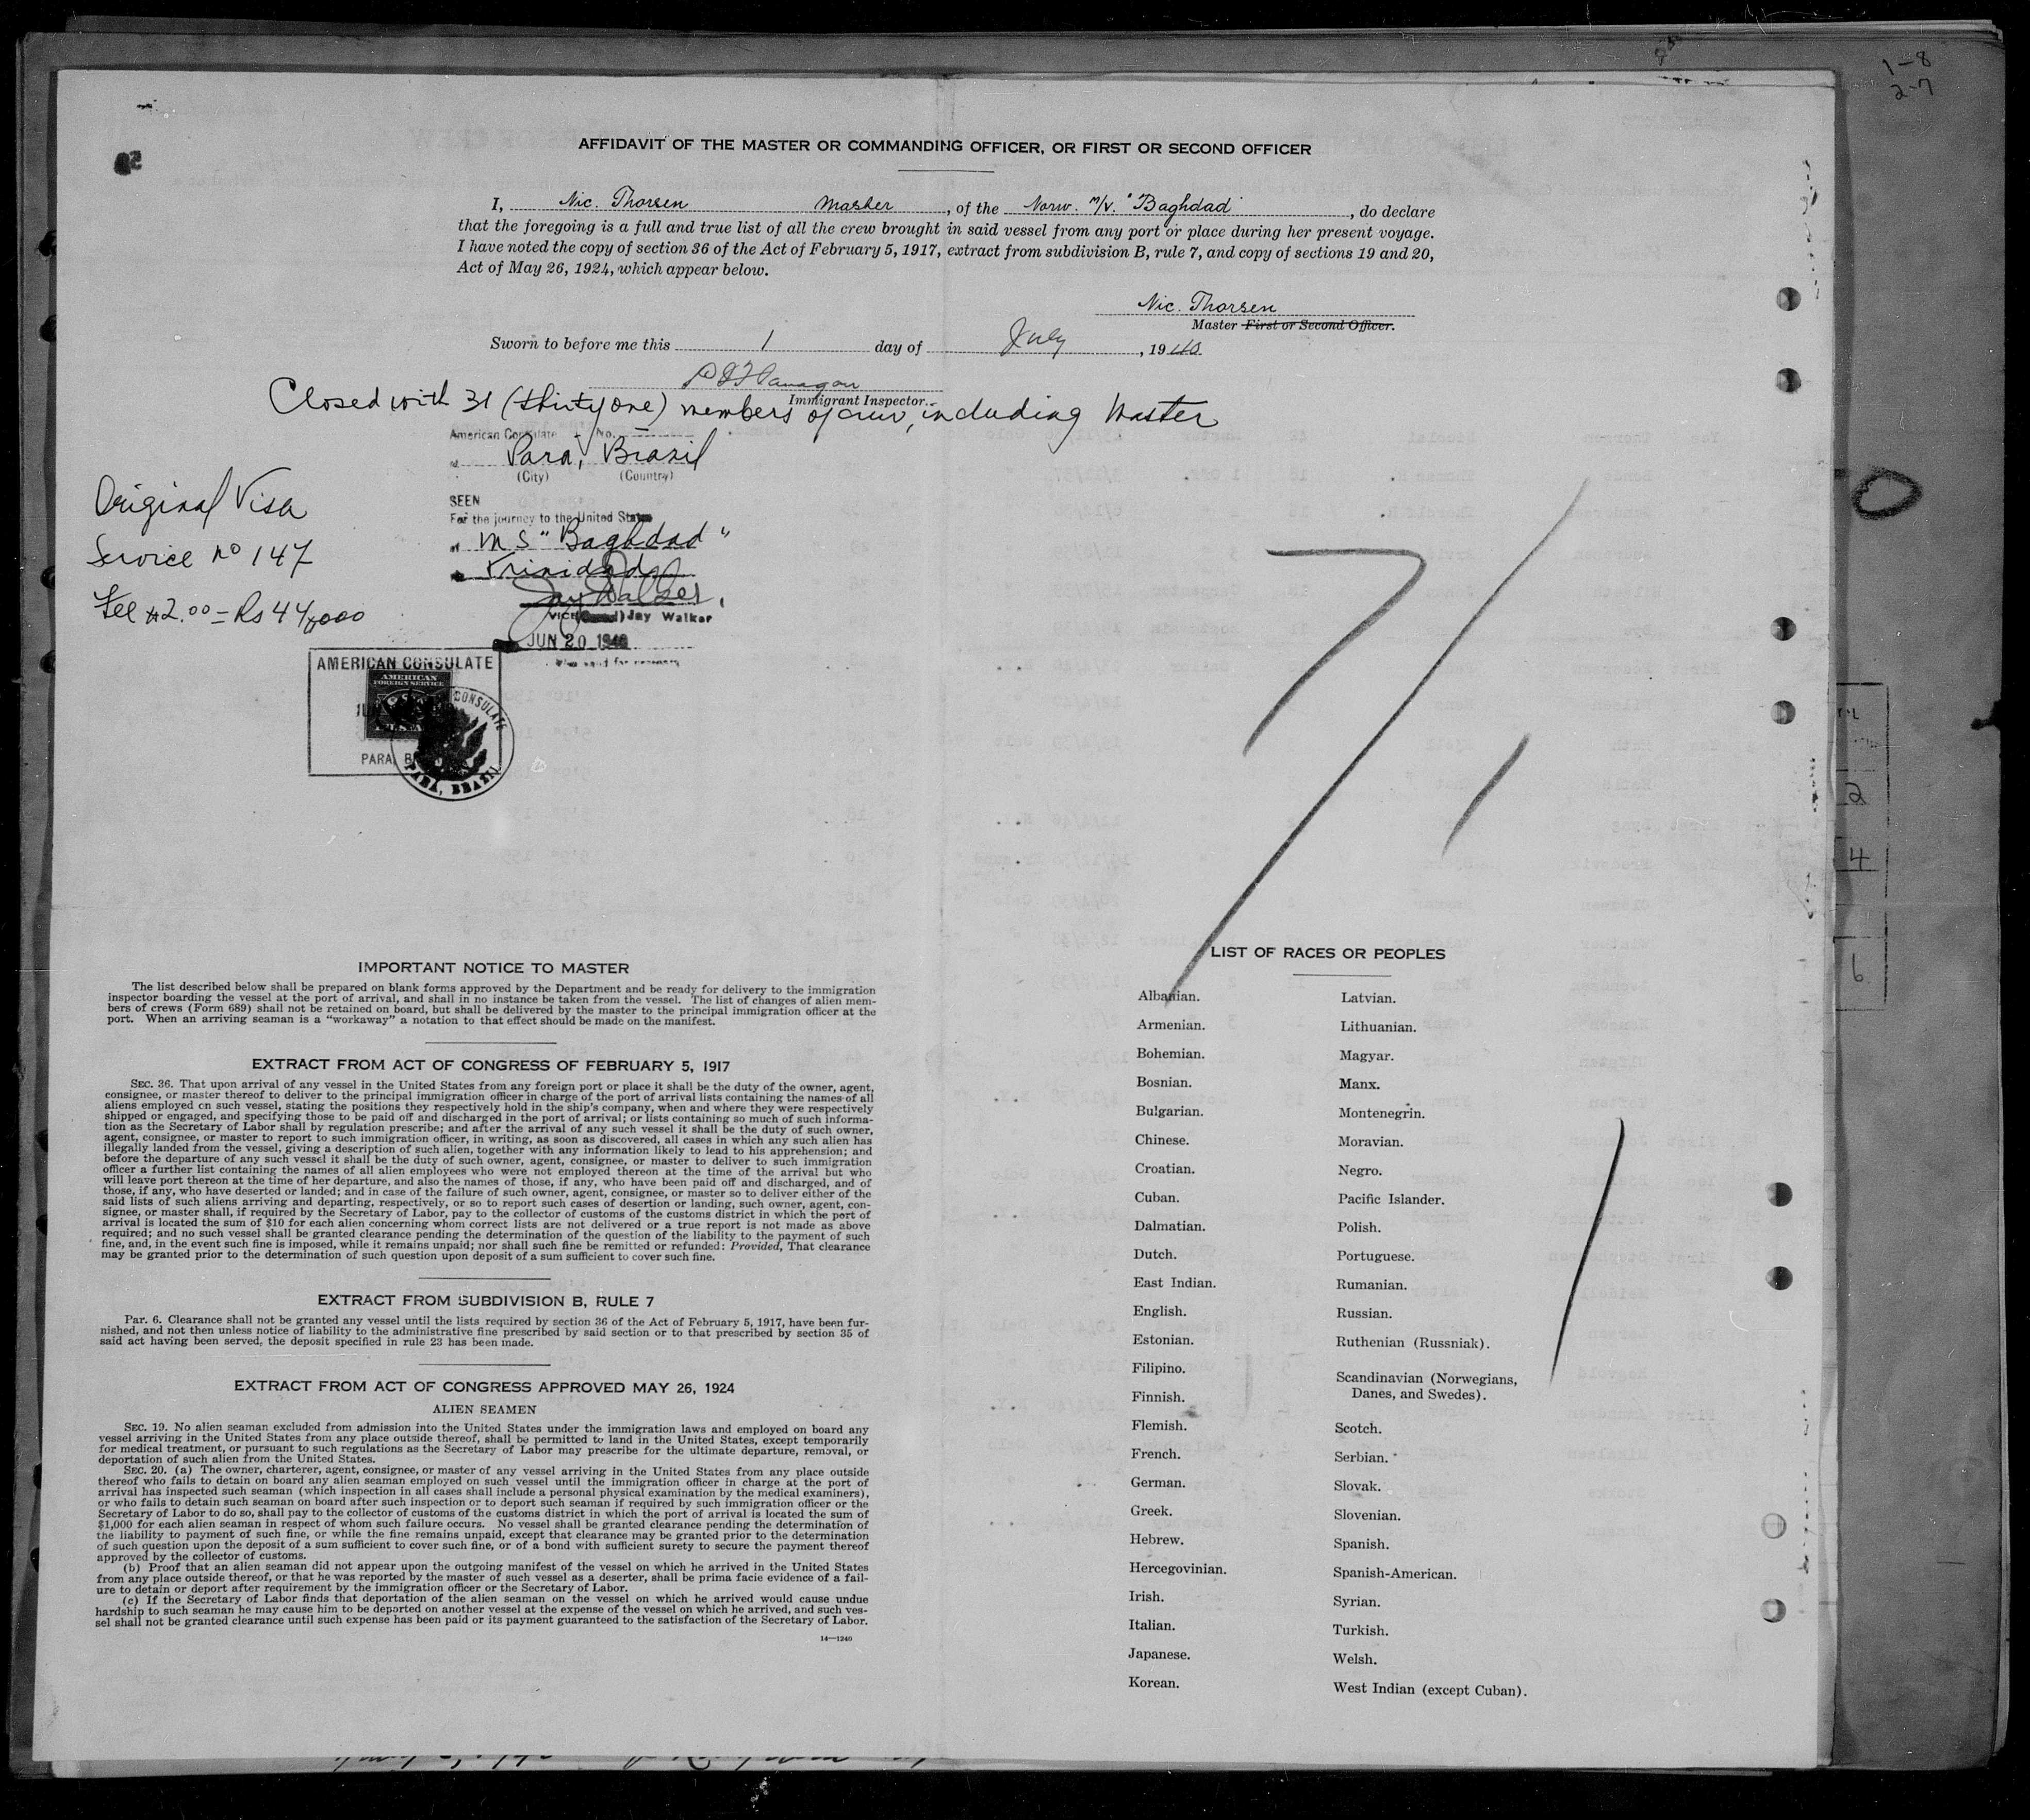 1-8
2-7
AFFIDAVIT OF THE MASTER OR COMMANDING OFFICER, OR FIRST OR SECOND OFFICER
I, Nic. Thorsen Master, of the Norw. M/V. "Baghdad", do declare
that the foregoing is a full and true list of all the crew brought in said vessel from any port or place during her present voyage.
I have noted the copy of section 36 of the Act of February 5, 1917, extract from subdivision B, rule 7, and copy of sections 19 and 20,
Act of May 26, 1924, which appear below.
Nic. Thorsen
Master First or Second Officer.
Sworn to before me this 1 day of July, 1940
Immigrant Inspector.
Closed with 31 (thirty one) members of crew, including Master
American Consulate No.
at Para, Brazil
(City) (Country)
SEEN
For the journey to the United States
MS "Baghdad"
Trinidad
Jay Walker,
Vice Jay Walker
JUN 20 1940
Original Visa
Service No 147
Fee $2.00 = Rs 44,000
AMERICAN CONSULATE
AMERICAN
FOREIGN SERVICE
CONSULATE
PARA, B
PARA, BRAZIL
7/1
2
4
6
IMPORTANT NOTICE TO MASTER
The list described below shall be prepared on blank forms approved by the Department and be ready for delivery to the immigration
inspector boarding the vessel at the port of arrival, and shall in no instance be taken from the vessel. The list of changes of alien mem-
bers of crews (Form 689) shall not be retained on board, but shall be delivered by the master to the principal immigration officer at the
port. When an arriving seaman is a "workaway" a notation to that effect should be made on the manifest.
EXTRACT FROM ACT OF CONGRESS OF FEBRUARY 5, 1917
SEC. 36. That upon arrival of any vessel in the United States from any foreign port or place it shall be the duty of the owner, agent,
consignee, or master thereof to deliver to the principal immigration officer in charge of the port of arrival lists containing the names of all
aliens employed on such vessel, stating the positions they respectively hold in the ship's company, when and where they were respectively
shipped or engaged, and specifying those to be paid off and discharged in the port of arrival; or lists containing so much of such informa-
tion as the Secretary of Labor shall by regulation prescribe; and after the arrival of any such vessel it shall be the duty of such owner,
agent, consignee, or master to report to such immigration officer, in writing, as soon as discovered, all cases in which any such alien has
illegally landed from the vessel, giving a description of such alien, together with any information likely to lead to his apprehension; and
before the departure of any such vessel it shall be the duty of such owner, agent, consignee, or master to deliver to such immigration
officer a further list containing the names of all alien employees who were not employed thereon at the time of the arrival but who
will leave port thereon at the time of her departure, and also the names of those, if any, who have been paid off and discharged, and of
those, if any, who have deserted or landed; and in case of the failure of such owner, agent, consignee, or master so to deliver either of the
said lists of such aliens arriving and departing, respectively, or so to report such cases of desertion or landing, such owner, agent, con-
signee, or master, shall, if required by the Secretary of Labor, pay to the collector of customs of the customs district in which the port of
arrival is located the sum of $10 for each alien concerning whom correct lists are not delivered or a true report is not made as above
required; and no such vessel shall be granted clearance pending the determination of the question of the liability to the payment of such
fine, and, in the event such fine is imposed, while it remains unpaid; nor shall such fine be remitted or refunded: Provided, That clearance
may be granted prior to the determination of such question upon deposit of a sum sufficient to cover such fine.
EXTRACT FROM SUBDIVISION B, RULE 7
Par. 6. Clearance shall not be granted any vessel until the lists required by section 36 of the Act of February 5, 1917, have been fur-
nished, and not then unless notice of liability to the administrative fine prescribed by said section or to that prescribed by section 35 of
said act having been served, the deposit specified in rule 23 has been made.
EXTRACT FROM ACT OF CONGRESS APPROVED MAY 26, 1924
ALIEN SEAMEN
SEC. 19. No alien seaman excluded from admission into the United States under the immigration laws and employed on board any
vessel arriving in the United States from any place outside thereof, shall be permitted to land in the United States, except temporarily
for medical treatment, or pursuant to such regulations as the Secretary of Labor may prescribe for the ultimate departure, removal, or
deportation of such alien from the United States.
SEC. 20. (a) The owner, charterer, agent, consignee, or master of any vessel arriving in the United States from any place outside
thereof who fails to detain on board any alien seaman employed on such vessel until the immigration officer in charge at the port of
arrival has inspected such seaman (which inspection in all cases shall include a personal physical examination by the medical examiners),
or who fails to detain such seaman on board after such inspection or to deport such seaman if required by such immigration officer or the
Secretary of Labor to do so, shall pay to the collector of customs of the customs district in which the port of arrival is located the sum of
$1,000 for each alien seaman in respect of whom such failure occurs. No vessel shall be granted clearance pending the determination of
the liability to payment of such fine, or while the fine remains unpaid, except that clearance may be granted prior to the determination
of such question upon the deposit of a sum sufficient to cover such fine, or of a bond with sufficient surety to secure the payment thereof
approved by the collector of customs.
(b) Proof that an alien seaman did not appear upon the outgoing manifest of the vessel on which he arrived in the United States
from any place outside thereof, or that he was reported by the master of such vessel as a deserter, shall be prima facie evidence of a fail-
ure to detain or deport after requirement by the immigration officer or the Secretary of Labor.
(c) If the Secretary of Labor finds that deportation of the alien seaman on the vessel on which he arrived would cause undue
hardship to such seaman he may cause him to be deported on another vessel at the expense of the vessel on which he arrived, and such ves-
sel shall not be granted clearance until such expense has been paid or its payment guaranteed to the satisfaction of the Secretary of Labor.
14—1240
LIST OF RACES OR PEOPLES
Albanian.
Armenian.
Bohemian.
Bosnian.
Bulgarian.
Chinese.
Croatian.
Cuban.
Dalmatian.
Dutch.
East Indian.
English.
Estonian.
Filipino.
Finnish.
Flemish.
French.
German.
Greek.
Hebrew.
Hercegovinian.
Irish.
Italian.
Japanese.
Korean.
Latvian.
Lithuanian.
Magyar.
Manx.
Montenegrin.
Moravian.
Negro.
Pacific Islander.
Polish.
Portuguese.
Rumanian.
Russian.
Ruthenian (Russniak).
Scandinavian (Norwegians,
Danes, and Swedes).
Scotch.
Serbian.
Slovak.
Slovenian.
Spanish.
Spanish-American.
Syrian.
Turkish.
Welsh.
West Indian (except Cuban).